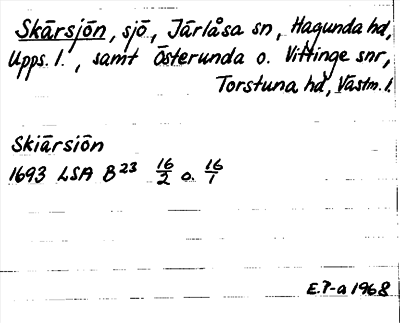 Skärsjön, sjö, Järlåsa sn, Hagunda hd,
Upps. l., samt Österunda o. Vittinge snr,
Torstuna hd, Västm. l.
Skiärsiön
1693 LSA B23 16/2 o. 16/1
E.P-a 1968